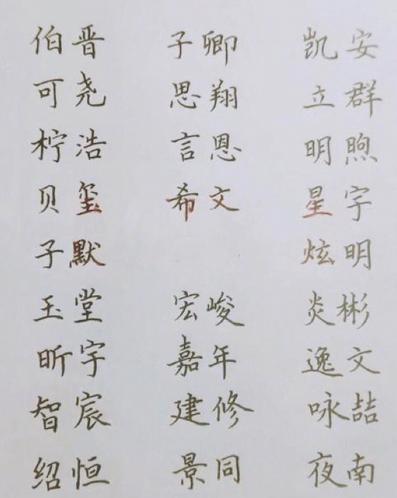 伯晋 子卿 凯安
可尧 思翔 立群
柠浩 言恩 明煦
贝玺 希文 星宇
子默 炫明
玉堂 宏峻 炎彬
昕宇 嘉年 逸文
智宸 建修 咏喆
绍恒 景同 夜南